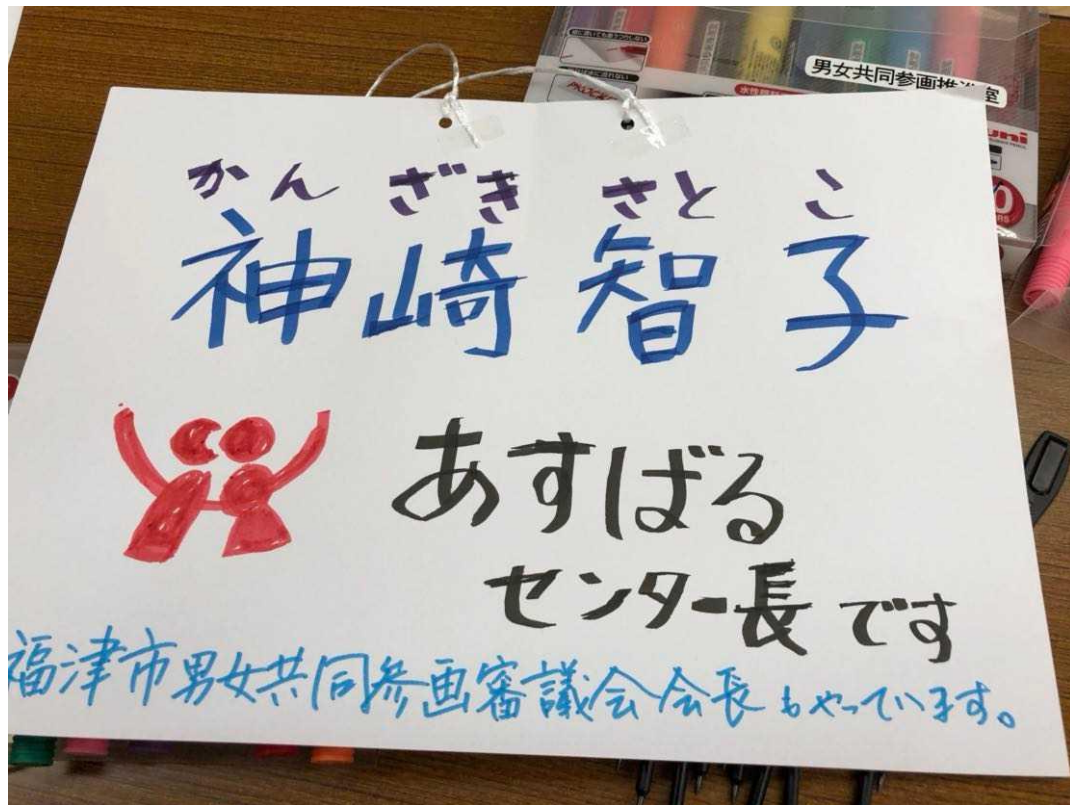 男女共同参画推進室
uni
かんざきさとこ
神崎智子
あすばる
センター長です
福津市男女共同参画審議会会長もやっています。